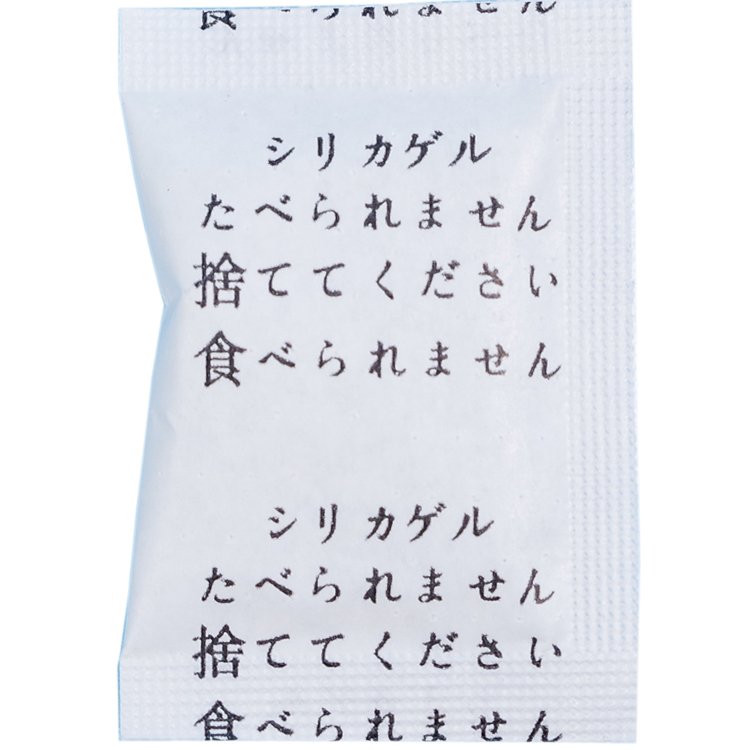 食べられません
シリカゲル
たべられません
捨ててください
食べられません
シリカゲル
たべられません
捨ててください
食べられません